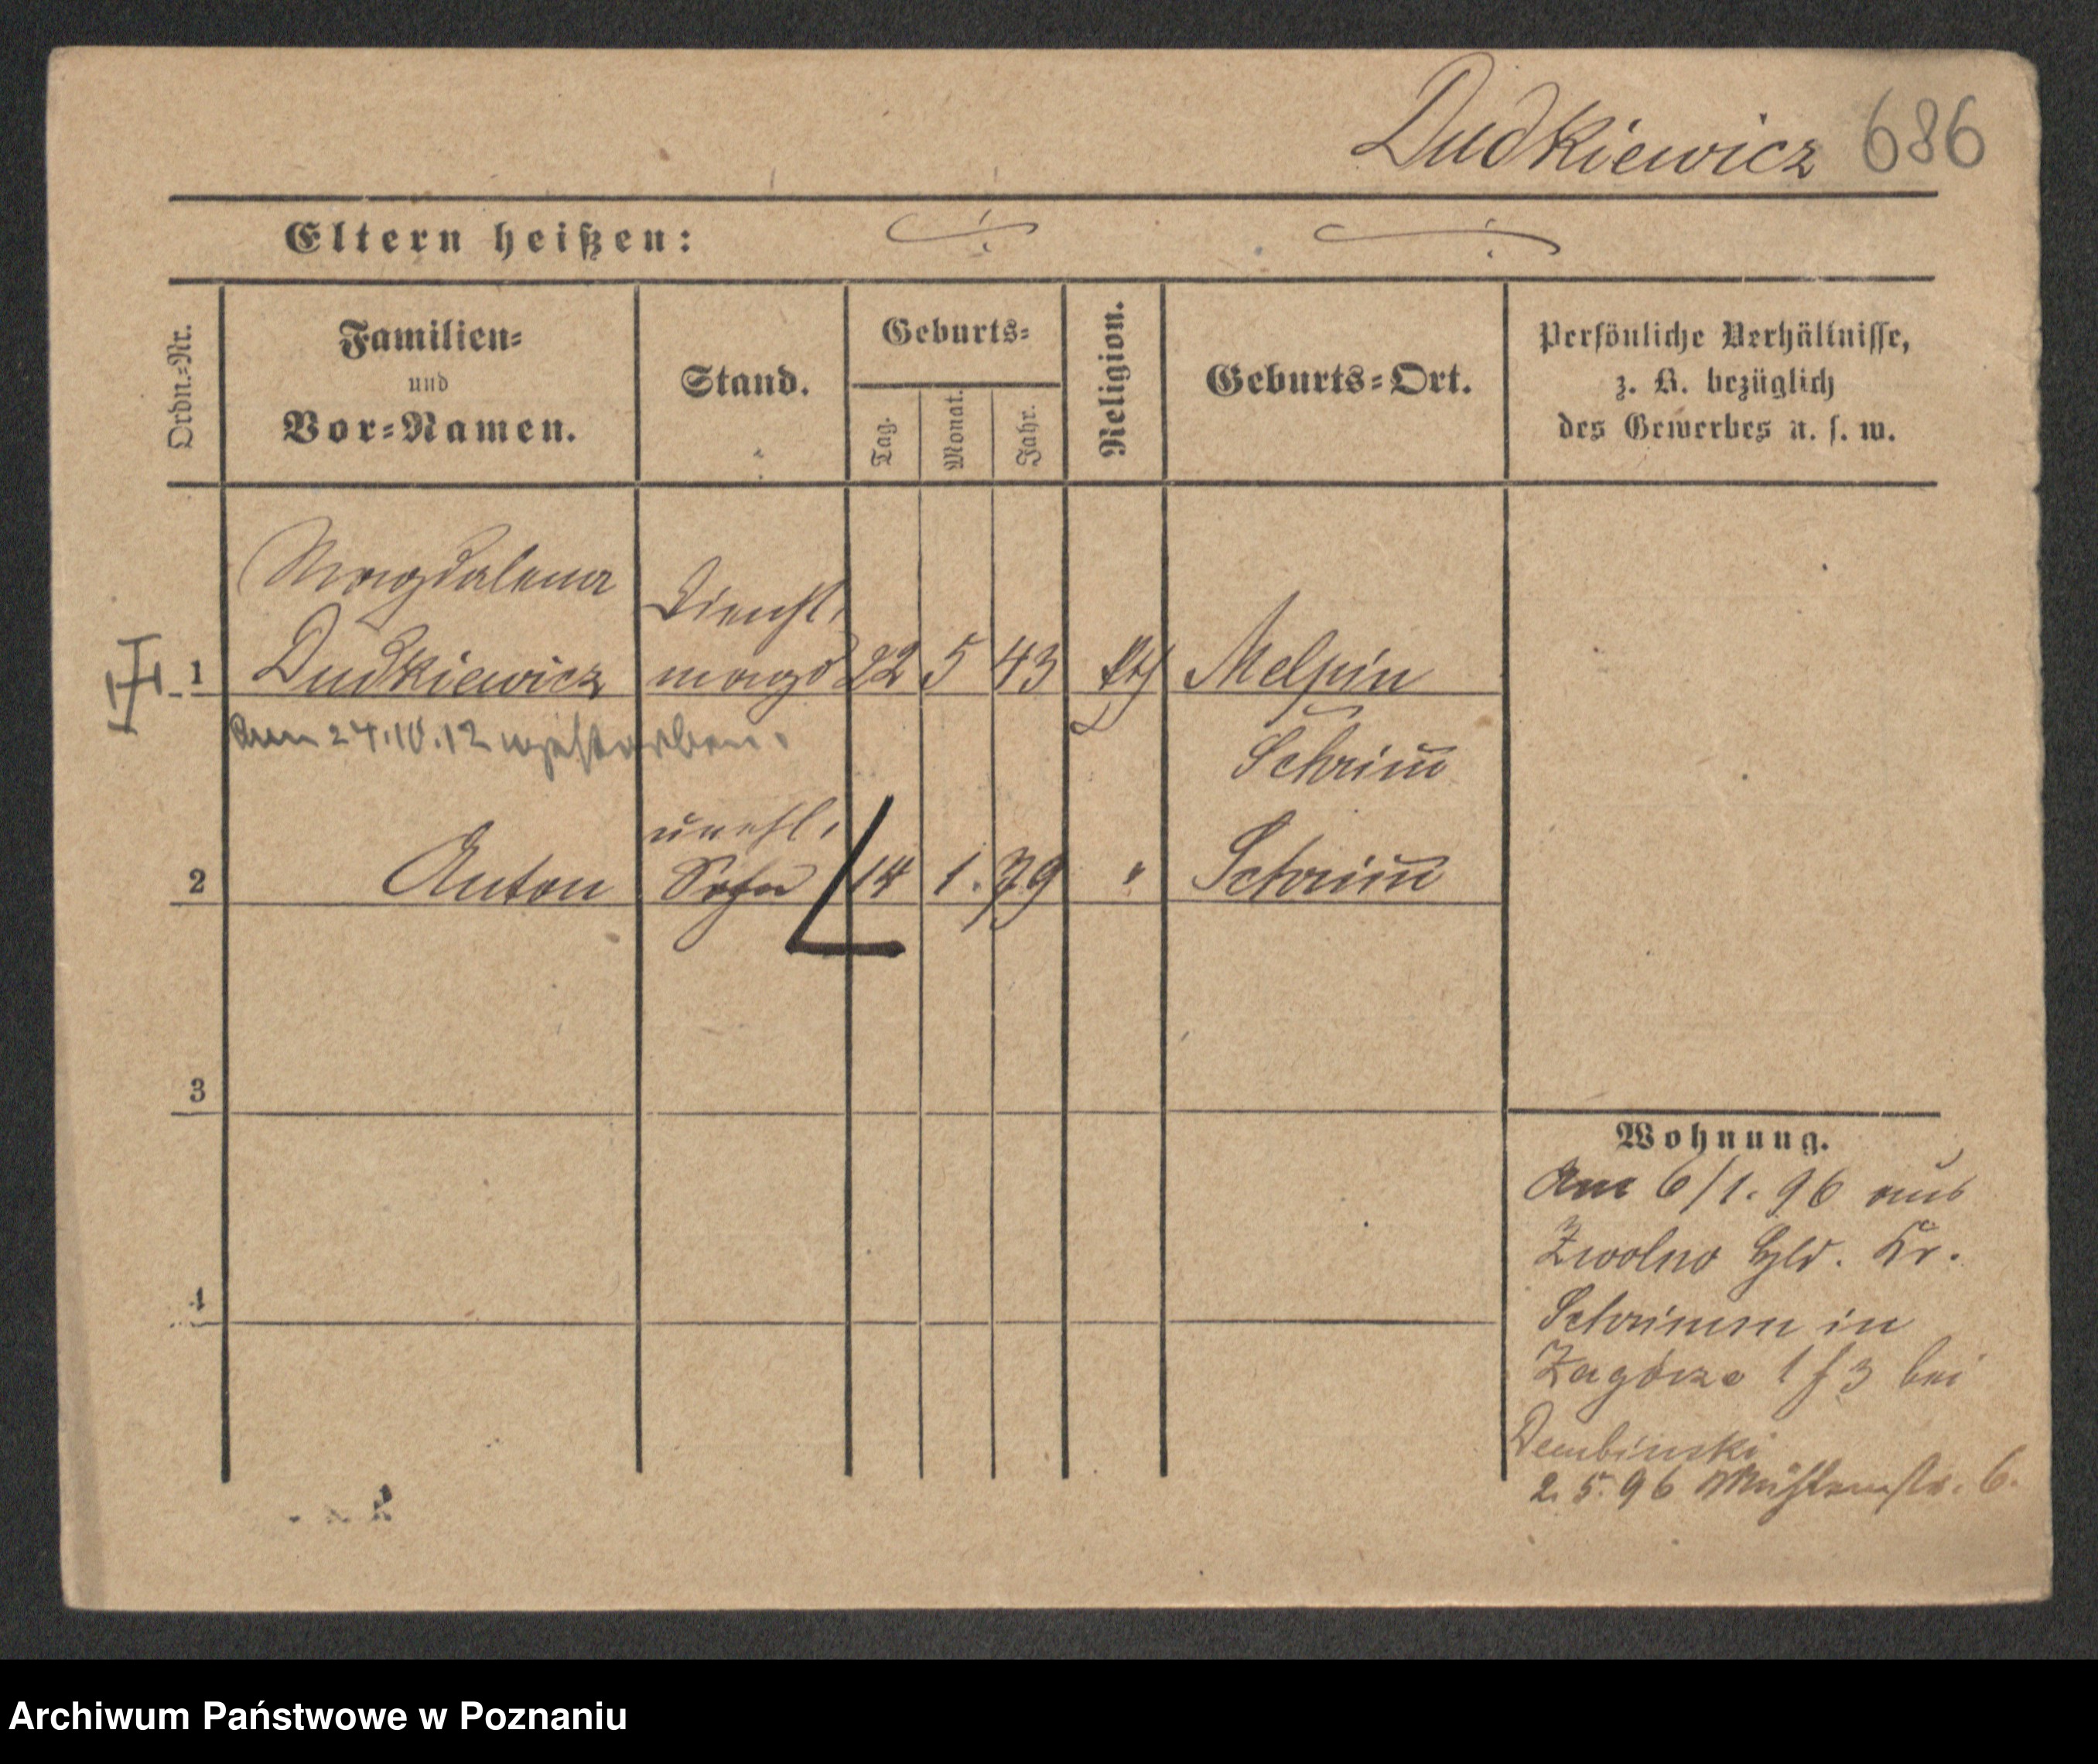 Dudkiewicz 686
Eltern heißen: ./. ./.
Ordn.=Nr.
Familien=
und
Vor=Namen.
Stand.
Geburts=
Tag.
Monat.
Jahr.
Religion.
Geburts=Ort.
Persönliche Verhältnisse,
z. B. bezüglich
des Gewerbes u. s. w.
Magdalena Dienst,
1 Dudkiewicz magd 22 5 43 kth Melpin
Am 24.10.12 gestorben.
Schrim̅
unehl.
2 Anton Sohn 14 1. 79 " Schrim̅
3
4
Wohnung.
Am 6/1. 96 aus
Zwolno Hld. Kr.
Schrimm in
Zagórze 1 f 3 bei
Dembinski
2. 5. 96 Mühlenstr. 6.
Archiwum Państwowe w Poznaniu